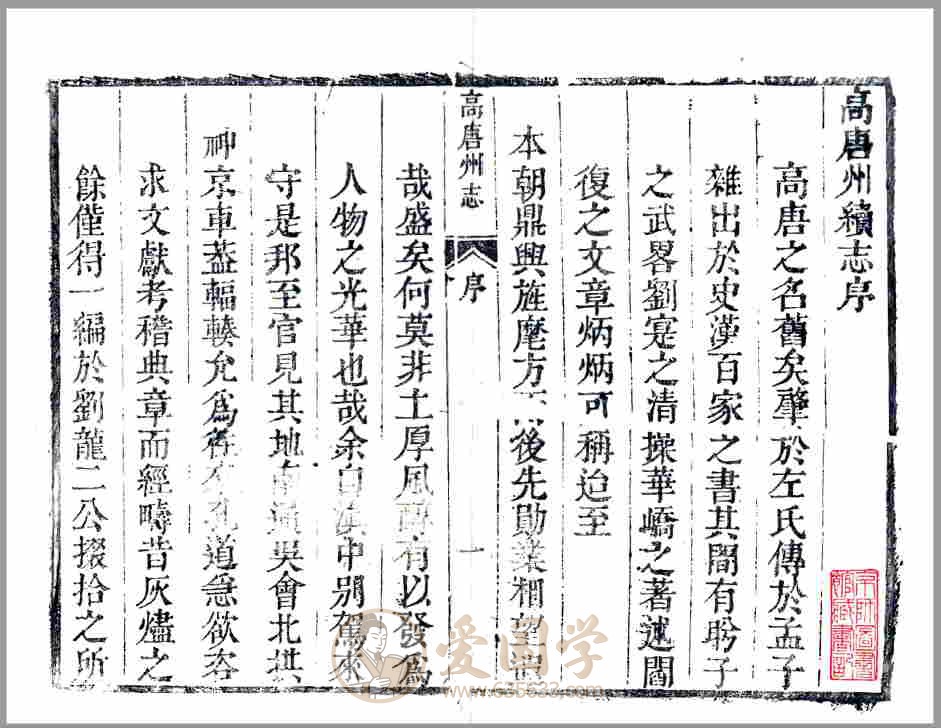 高唐州續志序
高唐之名舊矣肇於左氏傳於孟子
雜出於史漢百家之書其間有聆子
之武畧劉寔之清操華嶠之著述閻
復之文章炳炳可稱迨至
本朝鼎興旌麾方 後先勛業相望
高唐州志
序
一
哉盛矣何莫非土厚風 有以發為
人物之光華也哉余自滇中別駕來
守是邦至官見其地南 吳會北拱
神京車葢輻輳允為 孔道急欲咨
求文獻考稽典章而經疇昔灰燼之
餘僅得一編於劉龍二公掇拾之所
爱国学